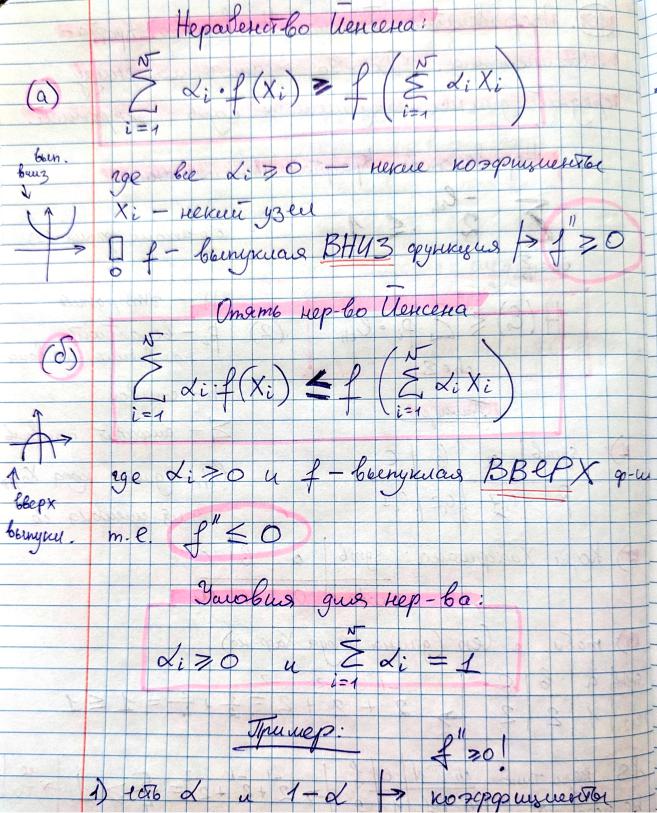 Неравенство Йенсена:
(а) N ∑ i=1 αi · f(xi) ≥ f ( N ∑ i=1 αi xi )
вып. вниз
где все αi ≥ 0 — некие коэфициенты
xi — некий узел
! f — выпуклая ВНИЗ функция ↦ f'' ≥ 0
Опять нер-во Йенсена
(б) N ∑ i=1 αi · f(xi) ≤ f ( N ∑ i=1 αi xi )
где αi ≥ 0 и f — выпуклая ВВЕРХ ф-ия
вверх выпукл.
т.е. f'' ≤ 0
Условия для нер-ва:
αi ≥ 0 и N ∑ i=1 αi = 1
Пример:
f'' ≥ 0!
1) есть α и 1 - α ↦ коэффициенты